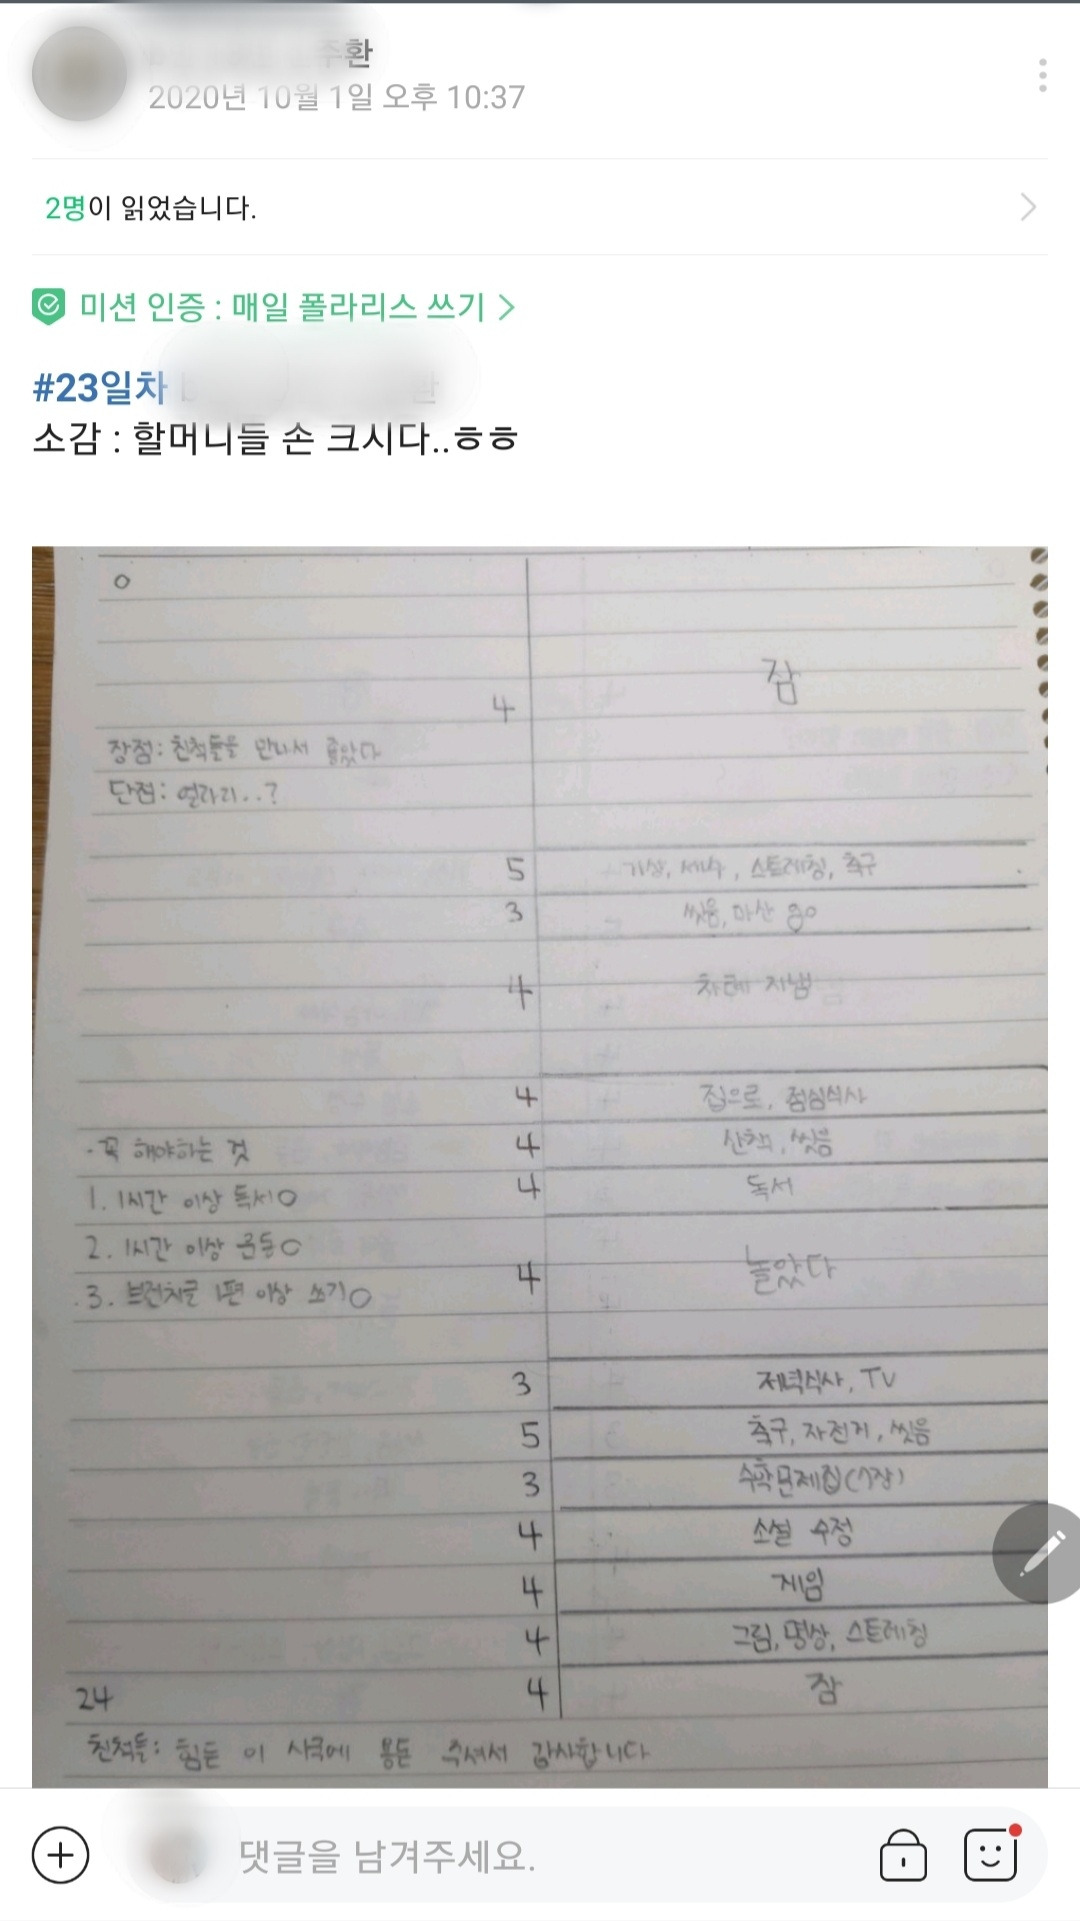 주환
2020년 10월 1일 오후 10:37
2명이 읽었습니다.
미션 인증 : 매일 폴라리스 쓰기 >
#23일차
소감 : 할머니들 손 크시다..ㅎㅎ
0
잠
4
장점: 친척들을 만나서 좋았다
단점: 열라리..?
5 기상, 세수, 스트레칭, 축구
3 씻음, 마산 go
4 차례 지냄
4 집으로, 점심식사
·꼭 해야하는 것 4 산책, 씻음
1. 1시간 이상 독서O 4 독서
2. 1시간 이상 운동O
4 놀았다
3. 브런치글 1편 이상 쓰기O
3 저녁식사, TV
5 축구, 자전거, 씻음
3 수학문제집(7장)
4 소설 수정
4 게임
4 그림, 명상, 스트레칭
24 4 잠
친척들: 힘든 이 시국에 용돈 주셔서 감사합니다
댓글을 남겨주세요.